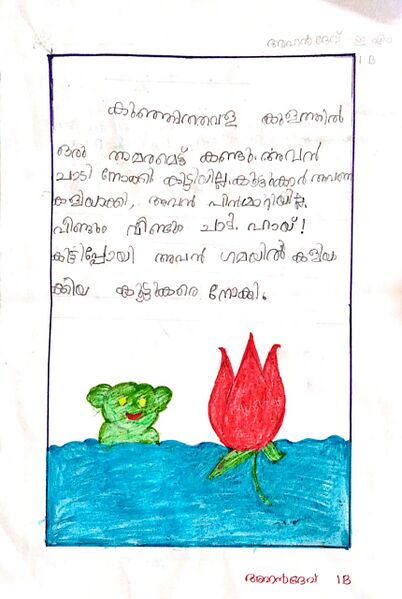 അമൻദേവ് ഇ എം
1 B
കുഞ്ഞിത്തവള കുളത്തിൽ
ഒരു താമരമൊട്ട് കണ്ടു. അവൻ
ചാടി നോക്കി കിട്ടിയില്ല. കൂട്ടുകാർ അവനെ
കളിയാക്കി, അവൻ പിൻമാറിയില്ല.
വീണ്ടും വീണ്ടും ചാടി. ഹായ്!
കിട്ടിപ്പോയി അവൻ ഗമയിൽ കളിയാ
ക്കിയ കൂട്ടുകാരെ നോക്കി.
1B